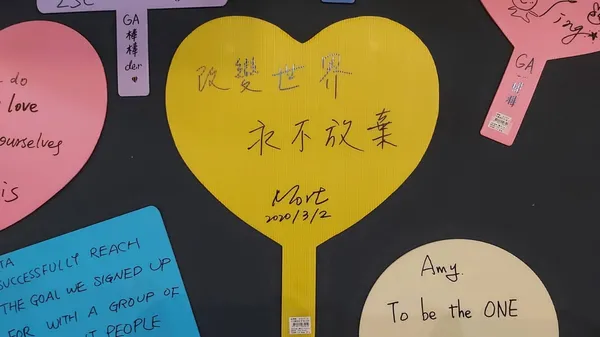 GA
棒棒
der
GA
ing
do
love
ourselves
is
改變世界
永不放棄
Mort
2020/3/2
TA
SUCCESSFULLY REACH
THE GOAL WE SIGNED UP
FOR WITH A GROUP OF
PEOPLE
Amy.
To be the ONE